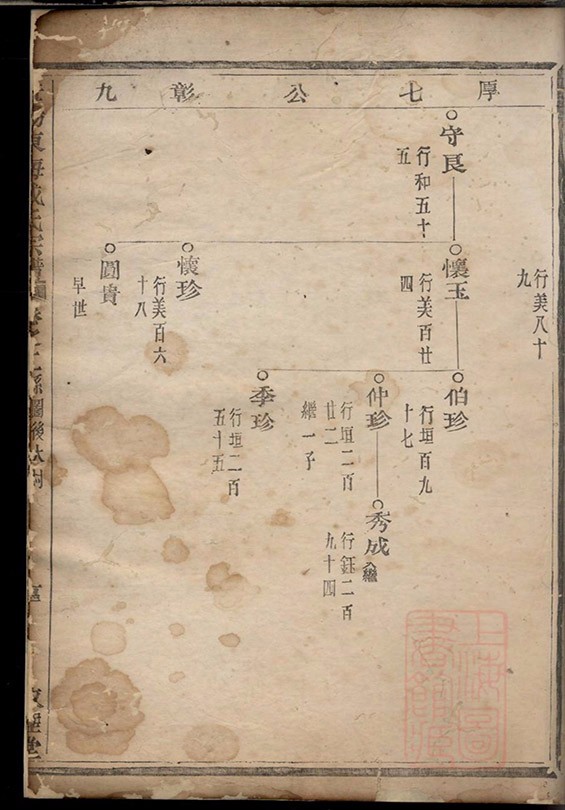 厚七公彰九
行美八十
九
守良
行和五十
五
懷玉
行美百廿
四
伯珍
行垣百九
十七
仲珍
行垣二百
廿二
繼一子
秀成
入繼
行鈺二百
九十四
季珍
行垣二百
五十五
懷珍
行美百六
十八
圓貴
早世
東海
氏宗譜
圖後